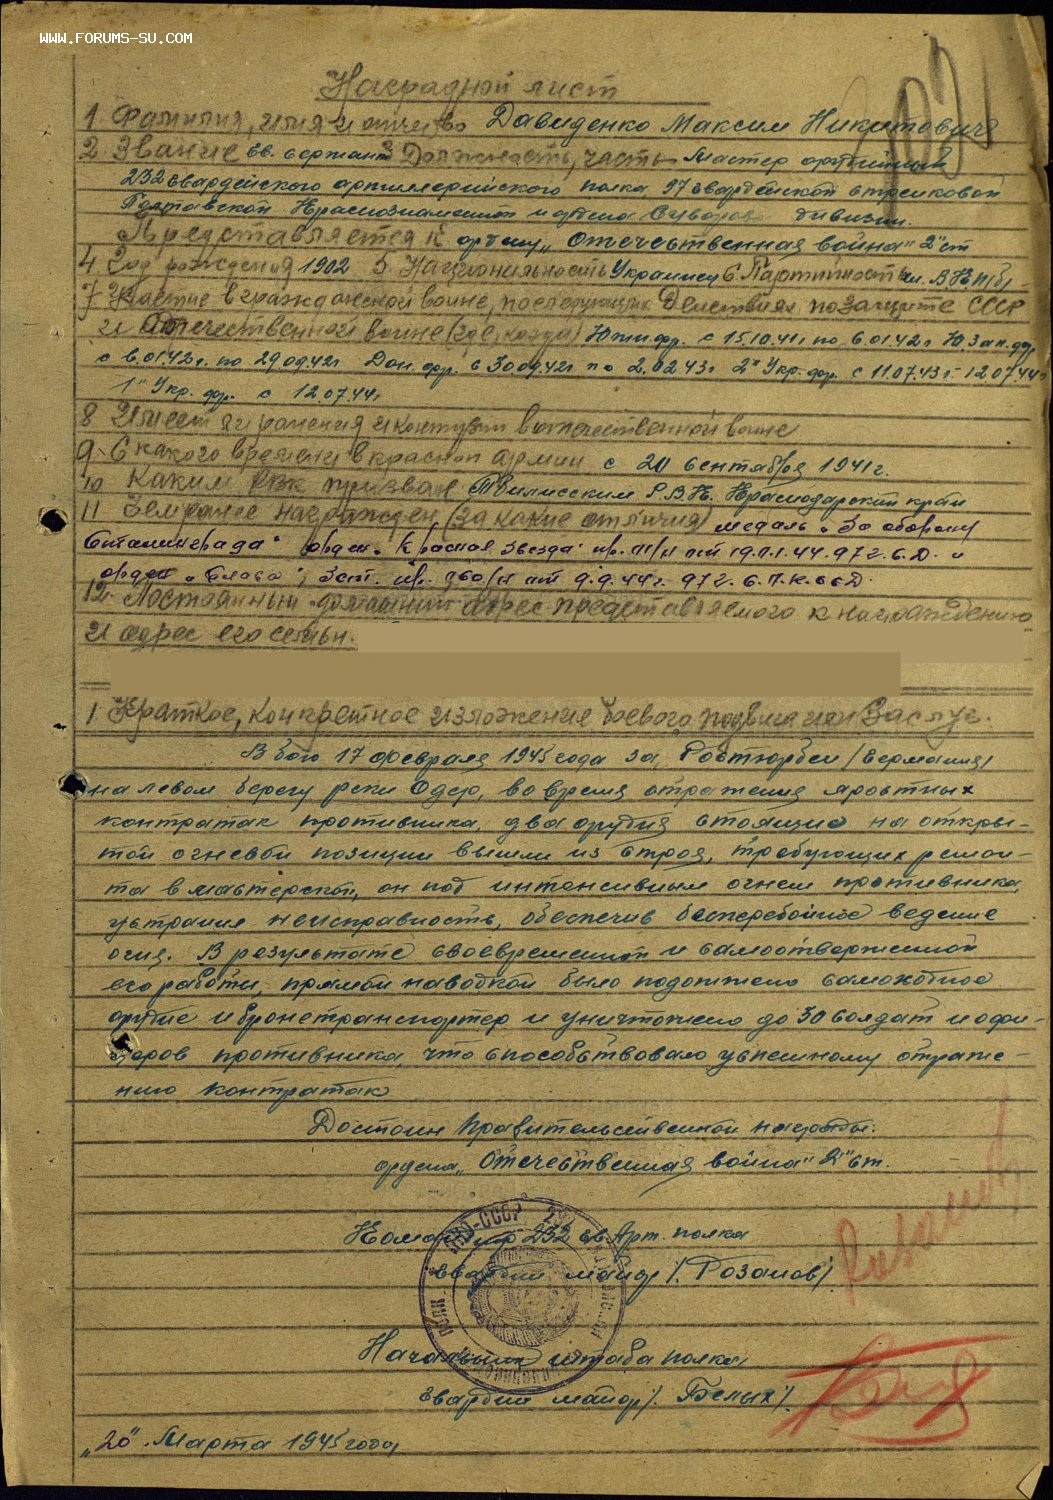 WWW.FORUMS-SU.COM
Наградной лист
1 Фамилия, имя и отчество Давиденко Максим Никитович
2 Звание гв. сержант 3 Должность, часть Мастер орудийный
232 гвардейского артиллерийского полка, 97 гвардейской стрелковой
Полтавской Краснознаменной и ордена Суворова дивизии.
Представляется к ордену „Отечественная война" 2" ст
4 Год рождения 1902 5. Национальность Украинец 6. Партийность
7 Участие в гражданской войне, последующих действиях по защите СССР
и Отечественной войне (где, когда) Южн. фр. с 15.10.41г по 6.01.42г Ю. Зап. фр.
с 6.01.42г. по 29.09.42г Дон. фр. с 30.09.42г по 2.02.43г 2" Укр. фр. с 11.07.43г. 12.07.44г
1" Укр. фр. с 12.07.44г
8 Имеет ли ранения и контузии в отечественной войне
9. С какого времени в красной армии с 20 сентября 1941г.
10 Каким РВК призван Тбилисским Р.В.К. Краснодарский край
11 Чем ранее награжден (за какие отличия) медаль „За оборону
Сталинграда" орден „Красная Звезда" пр. от 19.01.44. 97 г.с.д. и
орден „Слава" 3 ст. пр. от 9.9.44г. 97 г.
12. Постоянный домашний адрес представляемого к награждению
и адрес его семьи.
1 Краткое, конкретное изложение боевого подвига или заслуг.
В бою 17 февраля 1945 года за (Германия)
на левом берегу реки Одер, во время отражения яростных
контратак противника, два орудия стоящие на откры-
той огневой позиции вышли из строя, требующих ремон-
та в мастерской, он под интенсивным огнем противника,
устранил неисправность, обеспечив бесперебойное ведение
огня. В результате своевременной и самоотверженной
его работы, прямой наводкой было подожжено самоходное
орудие и бронетранспортер и уничтожено до 30 солдат и офи-
церов противника, что способствовало успешному отраже-
нию контратак
Достоин Правительственной награды:
ордена „Отечественная война" 2" ст.
Командир 232 гв. Арт. полка
гвардии майор /. Розанов/.
Начальник штаба полка
гвардии майор /. Белых /.
„20". Марта 1945 года